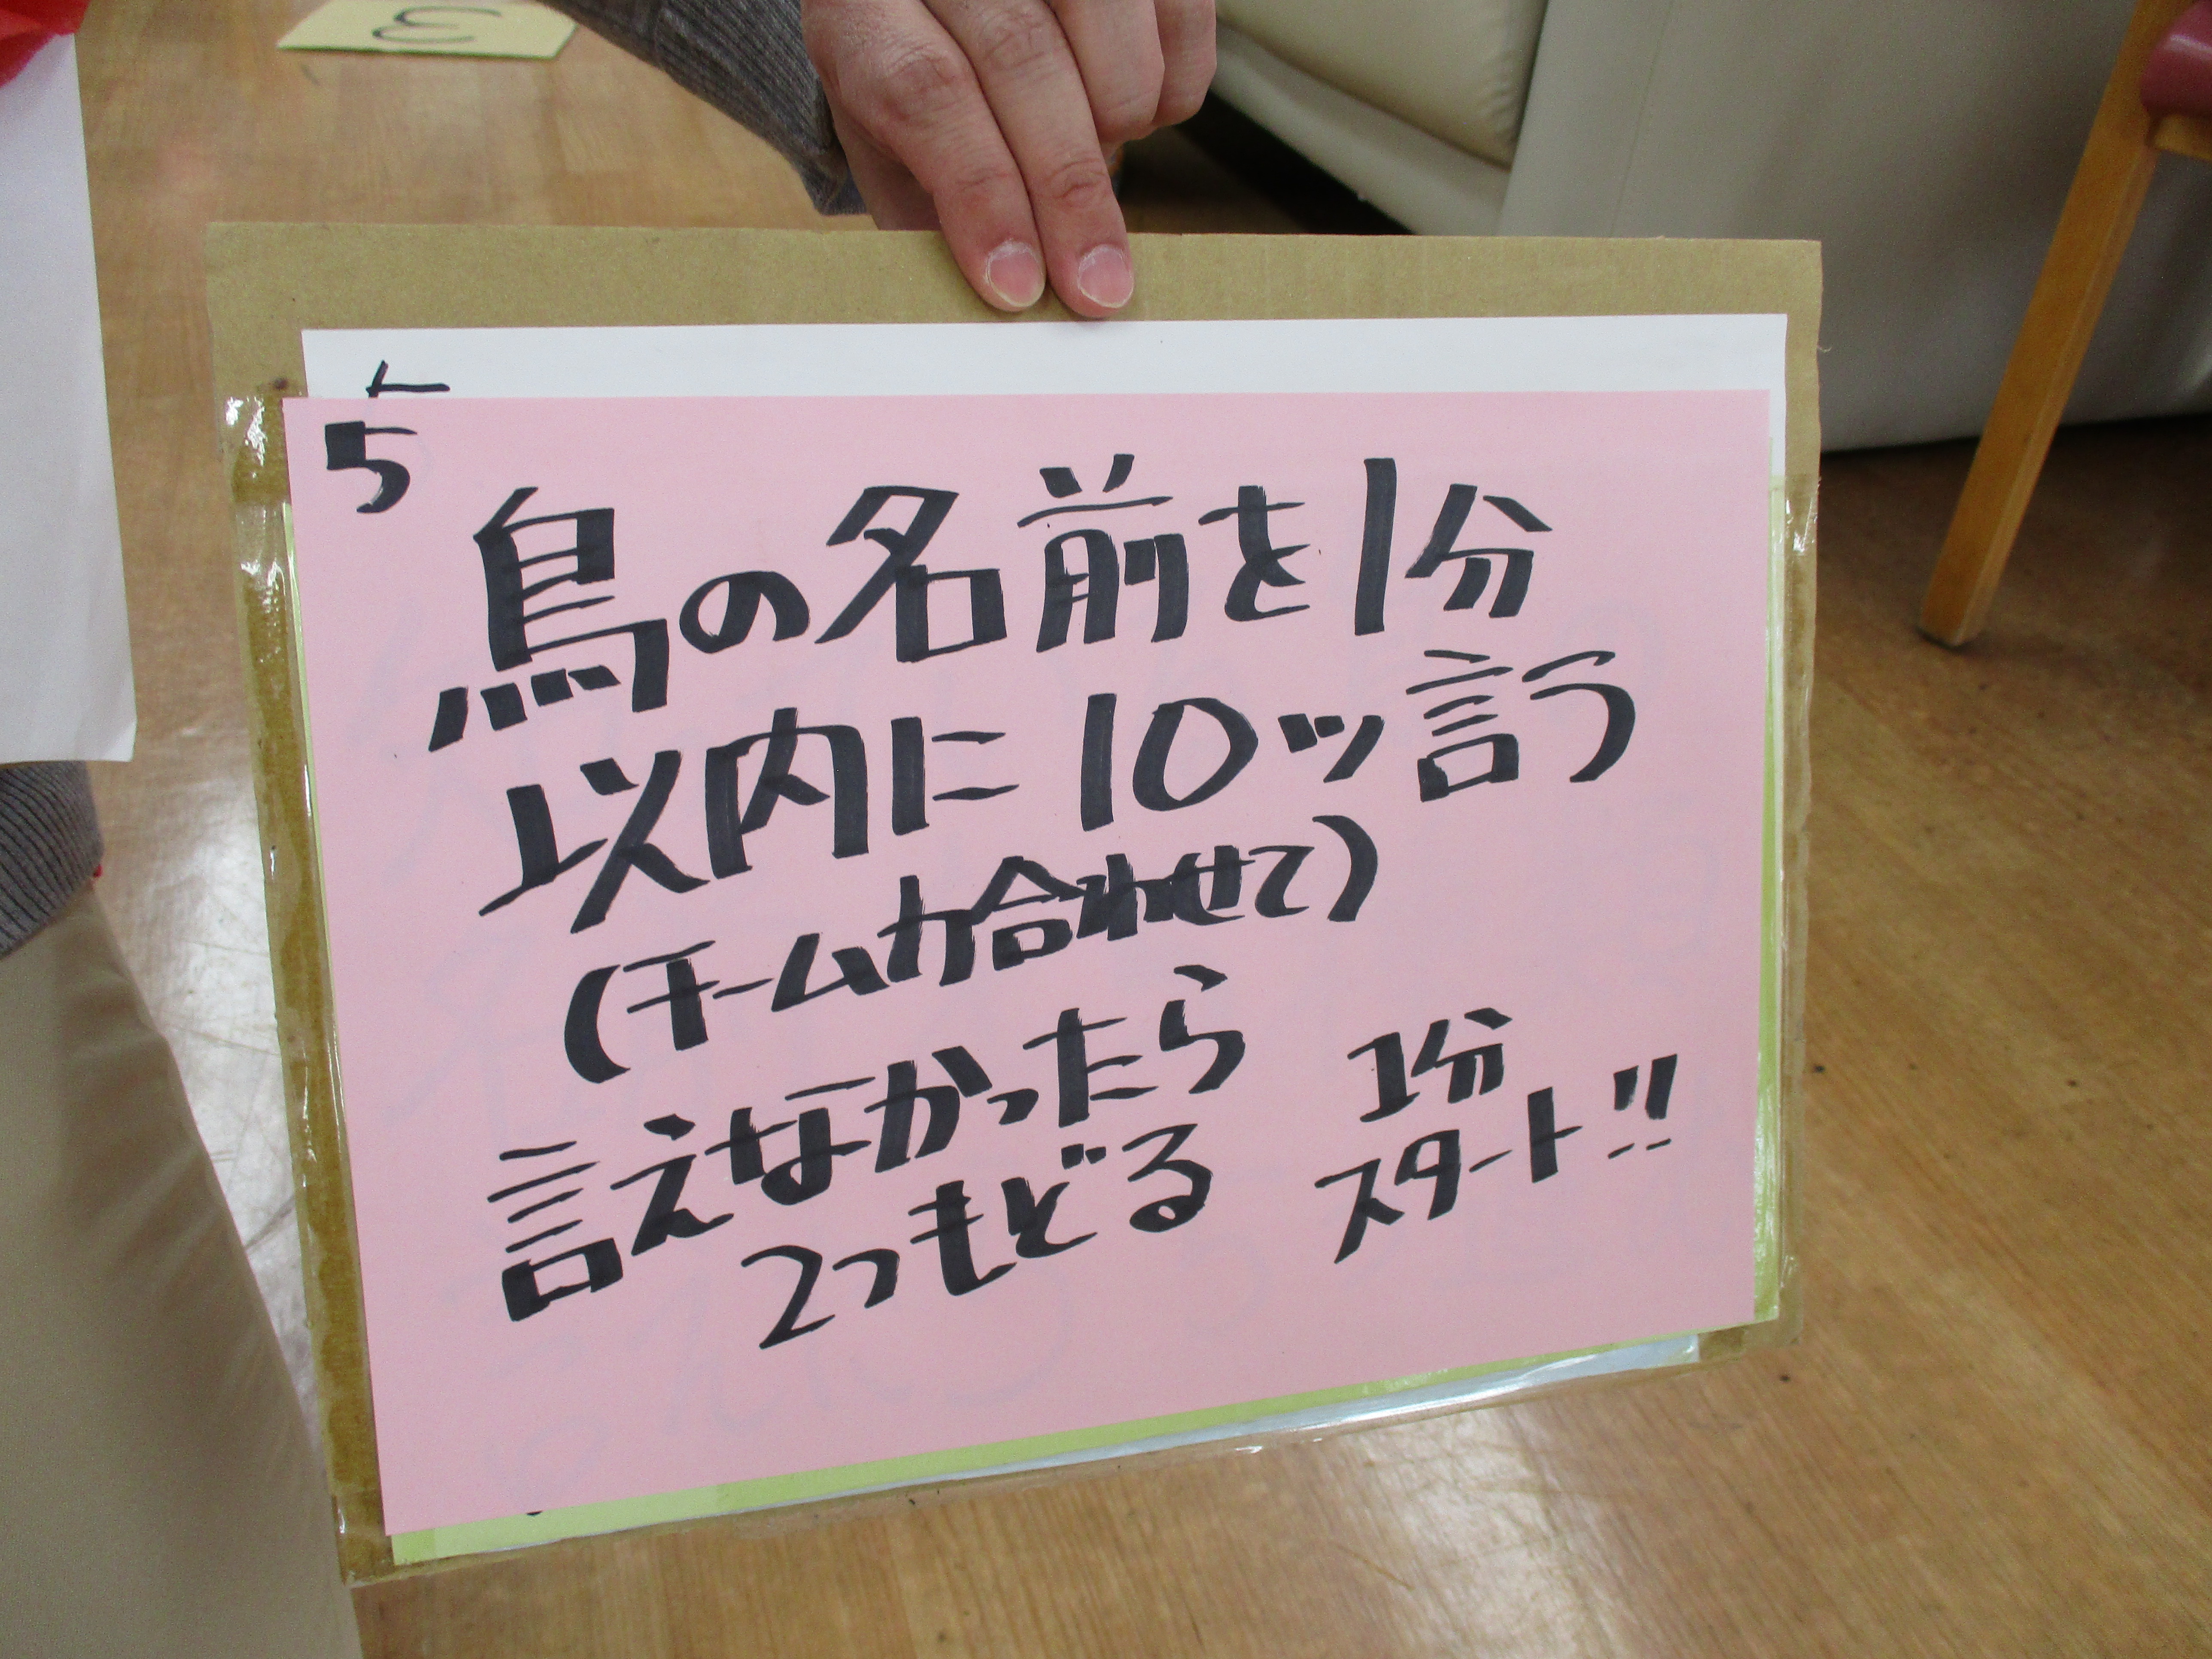 5
鳥の名前を1分
以内に10ッ言う
(チーム力合わせて)
言えなかったら
2つもどる
1分
スタート!!